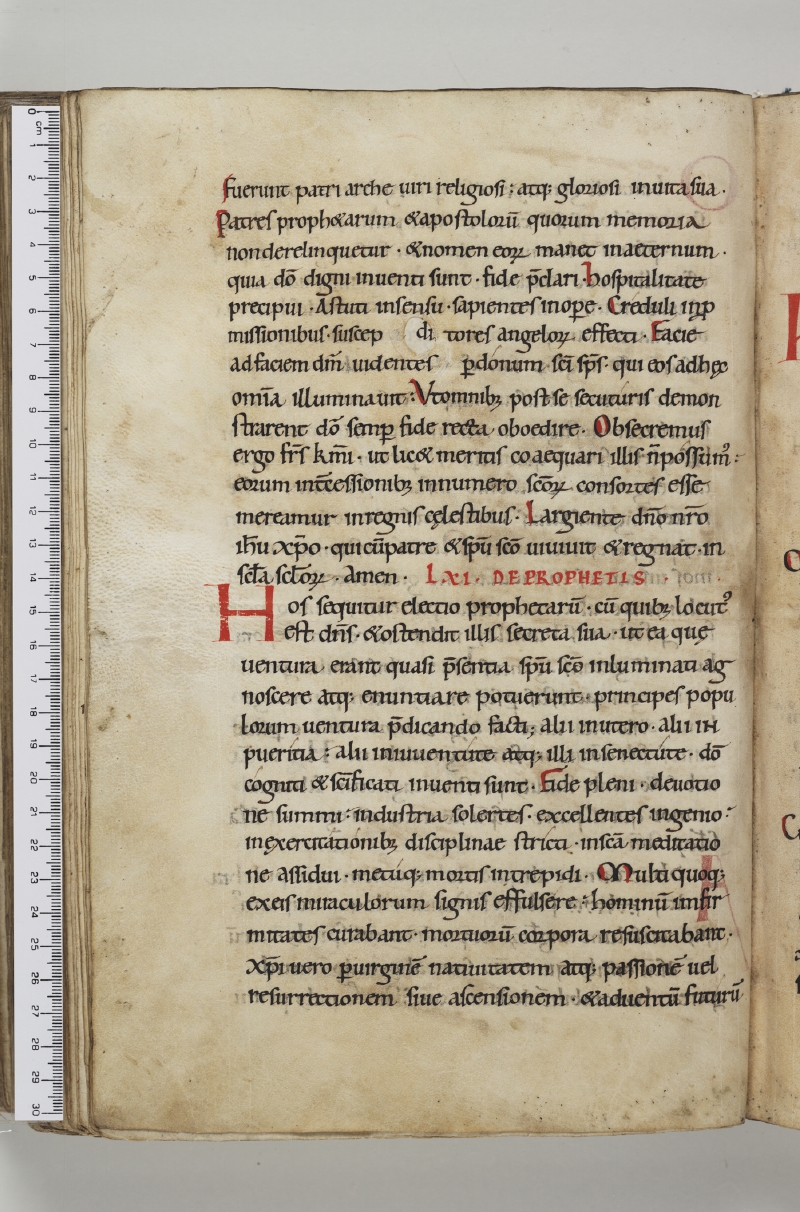 fuerunt patri arche uiri religiosi : atq; gloriosi inuita sua .
Patres proph&arum &apostolorū quorum memoria
non derelinquetur . &nomen eoꝝ manet inaeternum .
quia dō digni inuenti sunt . fide p̄clari . hospitalitate
precipui . Astuti insensu . sapientes inope . Creduli inꝓ
missionibus . suscep di tores angeloꝝ effecti . Facie
adfaciem dm̄ uidentes ꝑdonum sc̄i sp̄s . qui eos adhęc
om̄ia illuminauit : Vtomnibꝫ post se secuturis demon
strarent dō semꝑ fide recta oboedire . Obsecremus
ergo fr̄s km̄i . ut lic& meritis coaequari illis n̄possum᷒ :
eorum int̄cessionibꝫ innumero sc̄oꝝ consortes esse
mereamur inregnis cęlestibus . Largiente dn̄o nr̄o
ih̄u xp̄o . qui cū patre &sp̄u sc̄o uiuiuit &regnat . in
sc̄la sc̄loꝝ . Amen . LXI . DE PROPHETIS .
Hos sequitur electio prophetarū . cū quibꝫ locut᷒
est dn̄s . &ostendit illis secreta sua . ut ea que
uentura erant quasi p̄sentia sp̄u sc̄o inluminati ag
noscere atq; enuntiare potuerunt . principes popu
lorum uentura p̄dicando facti ; alii inutero . alii in
pueritia : alii iniuuentute atq; illi insenectute . dō
cogniti &sc̄ificati inuenti sunt . Fide pleni . deuotio
ne summi : industria solertes . excellentes ingenio :
inexercitationibꝫ disciplinae stricti . insc̄a meditatio
ne assidui . metuq; mortis intrepidi . Multi quoq;
exeis miraculorum signis effulsere : hominū infir
mitates curabant . mortuorū corpora resuscitabant .
xp̄i uero ꝑuirginē natiuitatem atq; passionē uel
resurrectionem siue ascensionem . &aduentū futurū